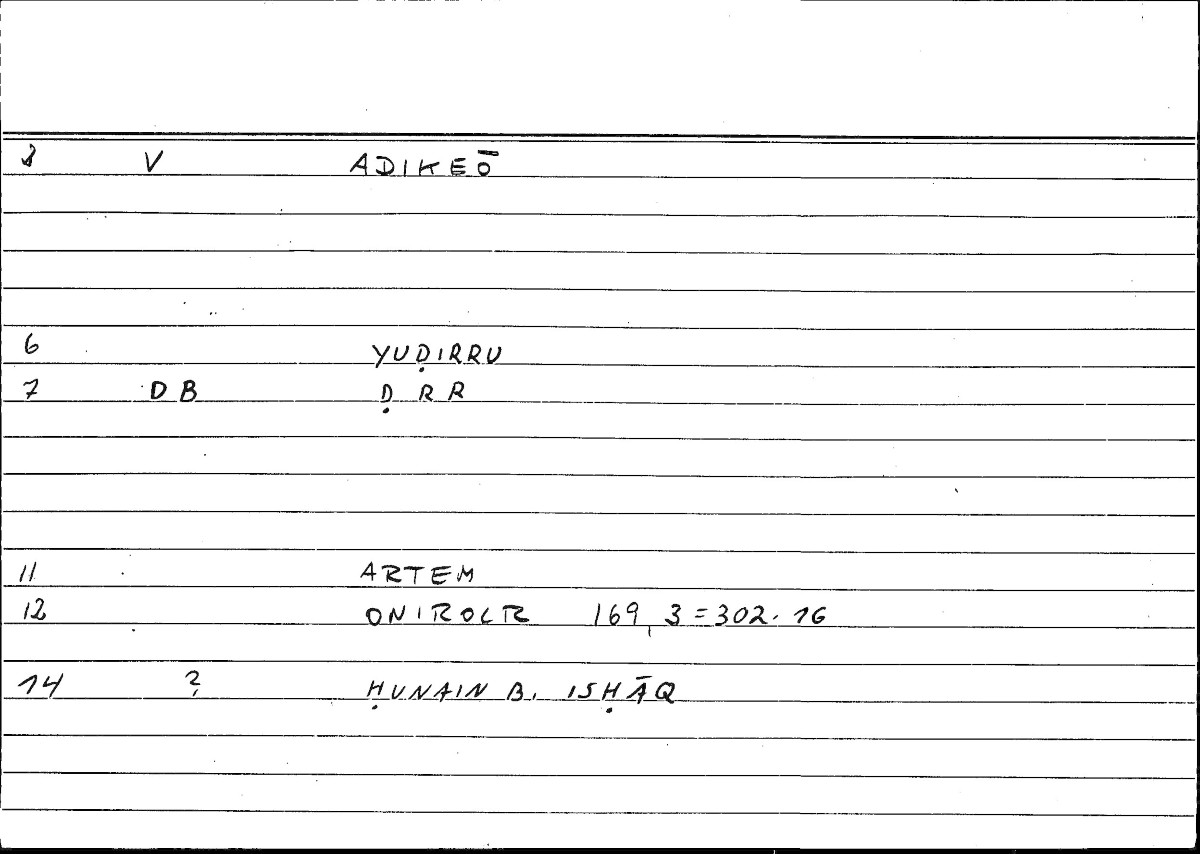 V ADIKEŌ
6 YUḌIRRU
7 DB Ḍ R R
11 ARTEM
12 ONIROCR 169, 3 = 302. 16
14 ? ḤUNAIN B. ISḤĀQ